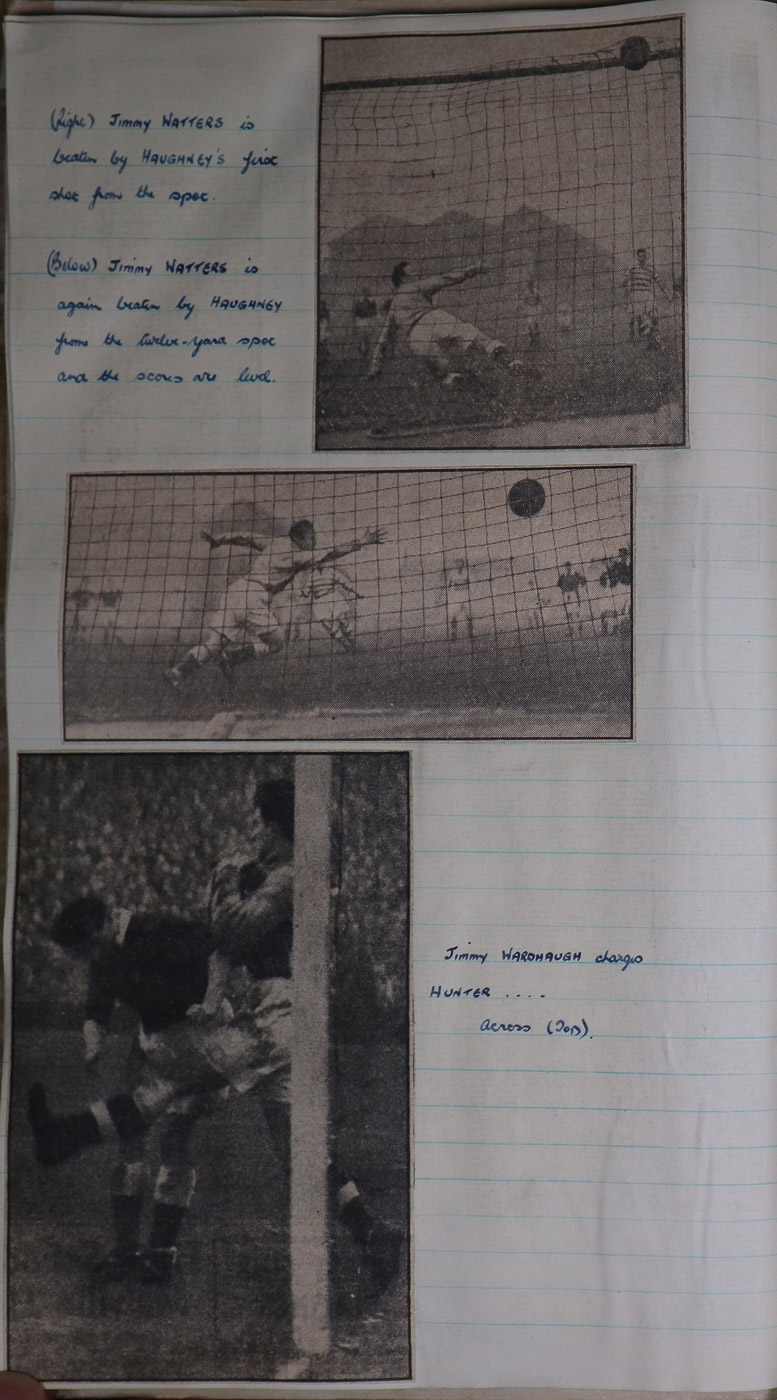 (Right) Jimmy WATTERS is
beaten by HAUGHNEY'S first
shot from the spot.
(Below) Jimmy WATTERS is
again beaten by HAUGHNEY
from the twelve-yard spot
and the scores are level.
Jimmy WARDHAUGH charges
HUNTER ....
Across (Top).